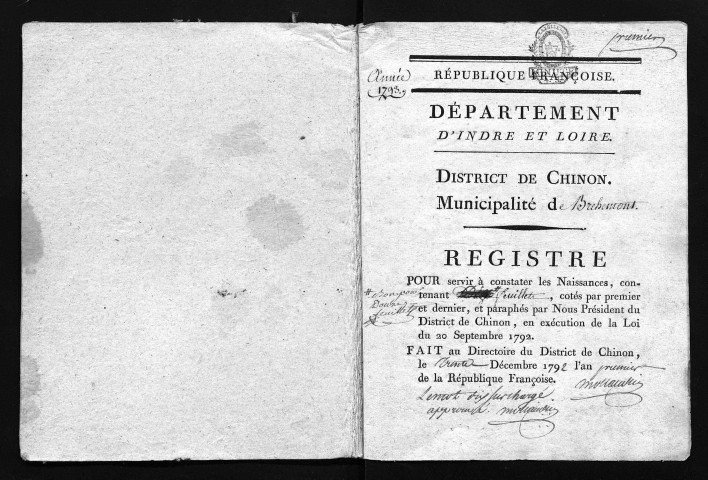 premier
Année
1793.
RÉPUBLIQUE FRANÇOISE.
DÉPARTEMENT
D'INDRE ET LOIRE.
DISTRICT DE CHINON.
Municipalité de Brehemont.
REGISTRE
POUR servir à constater les Naissances, con-
tenant feuillets, cotés par premier
et dernier, et paraphés par Nous Président du
District de Chinon, en exécution de la Loi
du 20 Septembre 1792.
# Bon pour
Douze
feuillets
FAIT au Directoire du District de Chinon,
le trente Décembre 1792 l'an premier
de la République Françoise.
Le mot dix surchargé
approuvé.